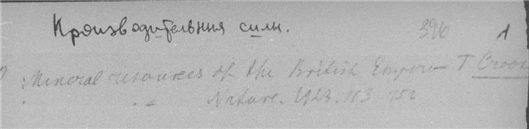 Производительныя силы. 396
Mineral resources of the British Empire T Crook
" " Nature. 1923. 113 752